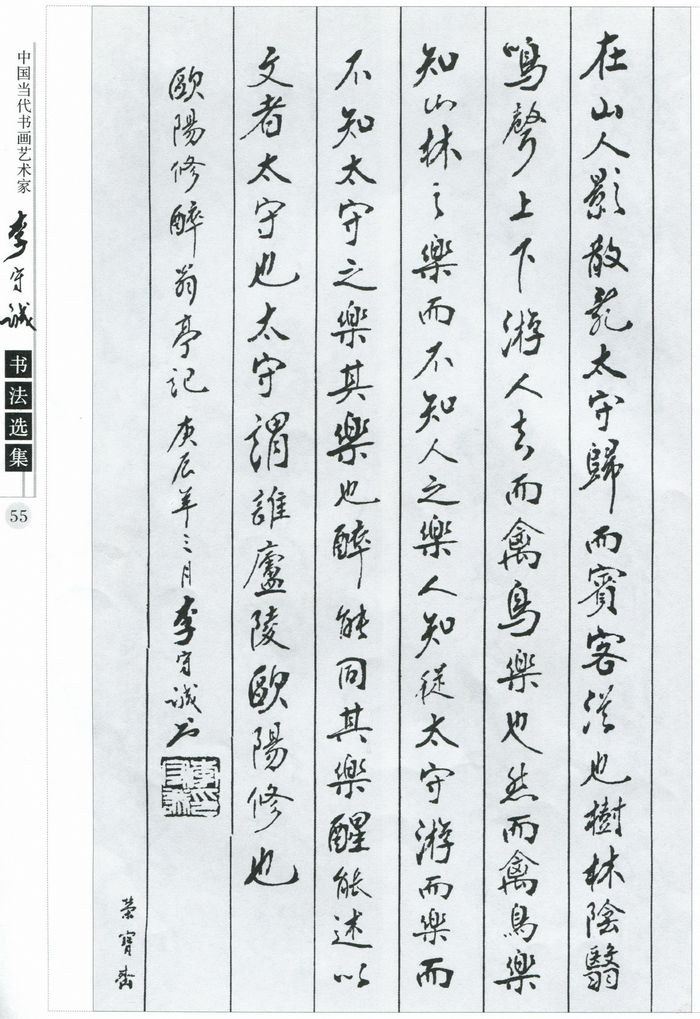 在山人影散亂太守歸而賓客從也樹林陰翳
鳴聲上下游人去而禽鳥樂也然而禽鳥樂
知山林之樂而不知人之樂人知從太守游而樂而
不知太守之樂其樂也醉能同其樂醒能述以
文者太守也太守謂誰廬陵歐陽修也
歐陽修醉翁亭記 庚辰年三月李守诚书
榮寶齋
中国当代书画艺术家
李守诚
书法选集
55